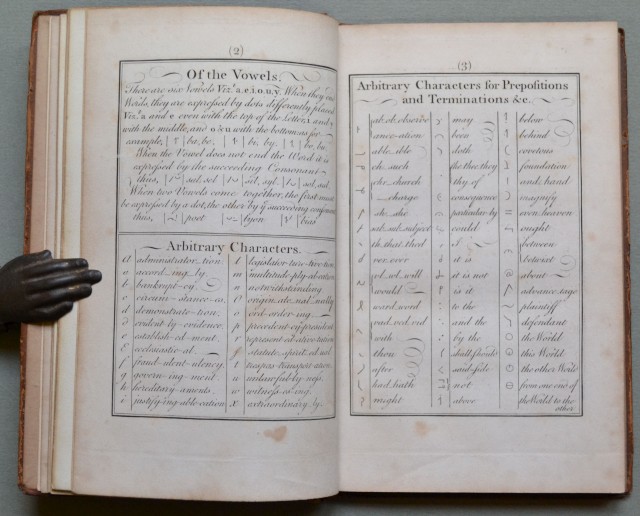 (2)
Of the Vowels.
There are six Vowels Viz.t a.e.i.o.u.y. When they end
Words, they are expressed by dots differently placed
Viz.t a and e even with the top of the Letter, i and y
with the middle, and o & u with the bottom as for
example, ba, be, bi, by, bo, bu.
When the Vowel does not end the Word it is
expressed by the succeeding Consonant
thus, sal, sel, sil, syl, sol, sul.
When two Vowels come together, the first must
be expressed by a dot, the other by if succeeding consonant
thus, poet lyon bias
Arbitrary Characters.
a administrator..tion
a accord..ing..ly
b bankrupt..cy
c circum..stance..es
d demonstrate..tion
d evident..ly..evidence
e establish..ed..ment
E ecclesiastic..al
f fraud..ulent..ulency
g govern..ing..ment
h hereditary..aments
i justify..ing..able..cation
l legislator..ture..tive..tion
m multitude..ply..cation
n notwithstanding
O origin..ate..nal..nality
o ord..order..ing
p precedent..cy..president
r represent..ed..ation
statute
t trespass..transport..ation
u unlawful..ly..ness
w witness..es..ing
x extraordinary..ly
(3)
Arbitrary Characters for Prepositions
and Terminations &c.
ance..ation
able..ible
ch..such
chr..church
charge
sh..she
th..that..thed
ver..ever
vel..wil..will
would
ward..word
with
thou
after
had..hath
might
may
been
doth
the..thee..they
thy..of
consequence
particular..ly
could
I
it is
it is not
is it
to the
and the
by the
shall..should
said..side
not
above
below
behind
covetous
foundation
and..hand
magnify
even..heaven
ought
between
betwixt
about
advantage
plaintiff
defendant
the World
this World
the other World
from one end of
the World to the
other